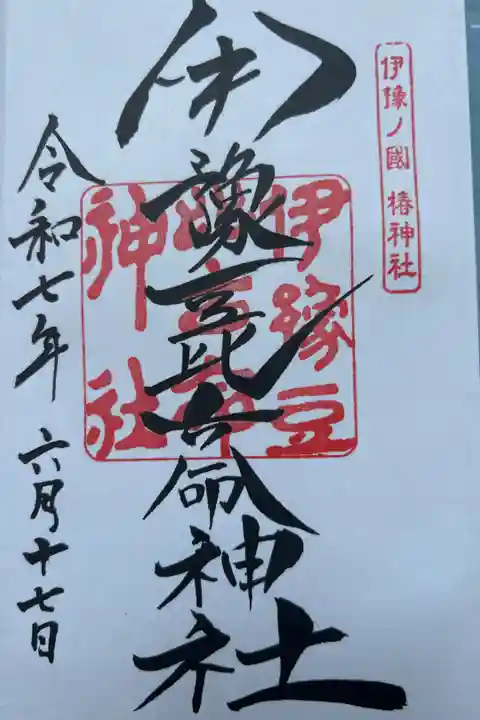 伊豫ノ國 椿神社
伊豫豆比古命神社
伊豫豆
比古命
神社
令和七年 六月十七日